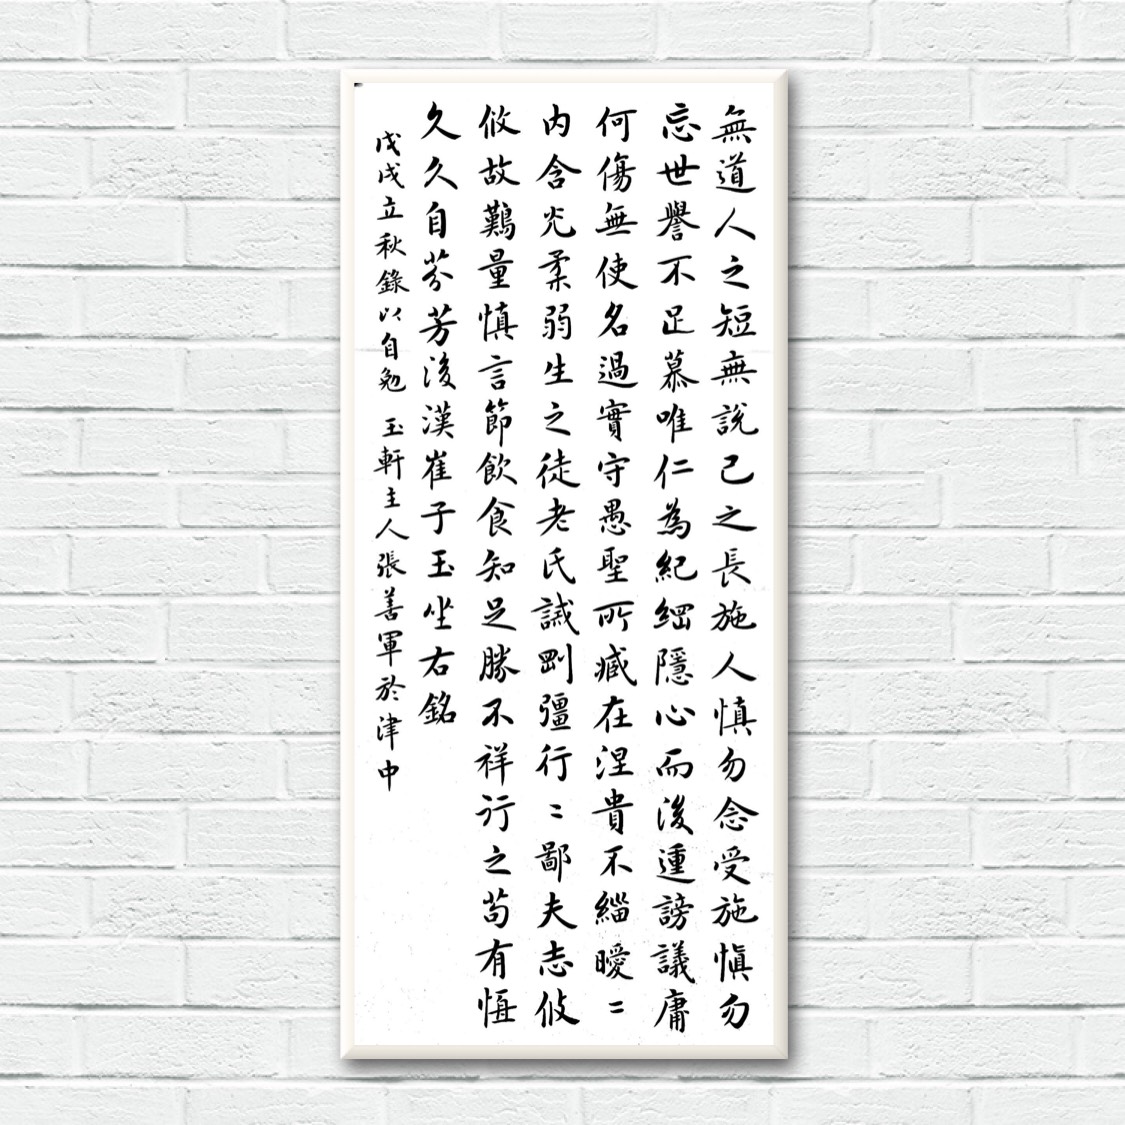 無道人之短無說己之長施人慎勿念受施慎勿
忘世譽不足慕唯仁為紀綱隱心而後動謗議庸
何傷無使名過實守愚聖所臧在涅貴不緇曖〻
內含光柔弱生之徒老氏誡剛彊行〻鄙夫志攸
攸故難量慎言節飲食知足勝不祥行之苟有恆
久久自芬芳後漢崔子玉坐右銘
戊戌立秋錄以自勉 玉軒主人張善軍於津中